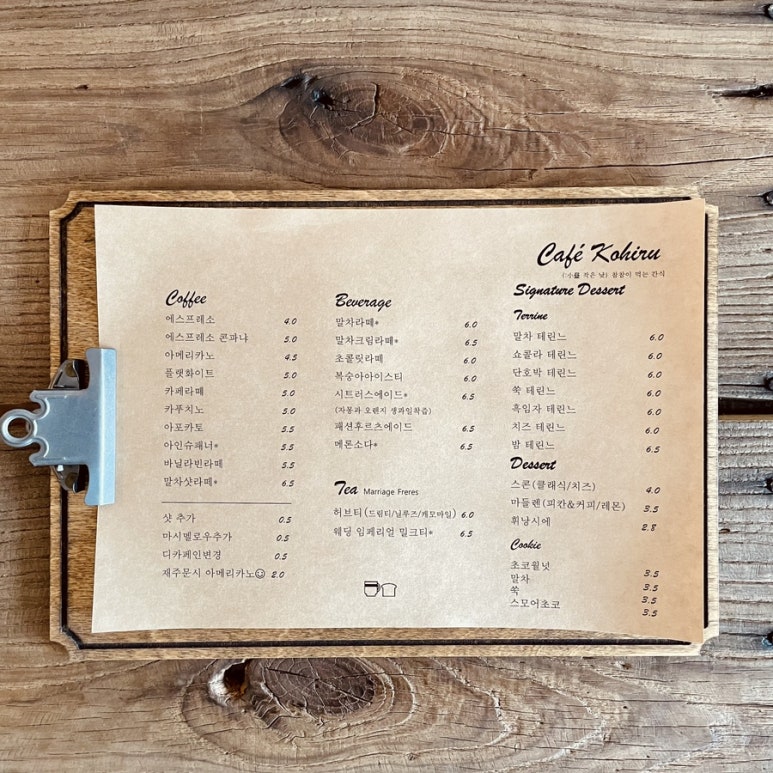 Café Kohiru
(小昼 작은 낮) 참참이 먹는 간식
Coffee
에스프레소 4.0
에스프레소 콘파냐 5.0
아메리카노 4.5
플랫화이트 5.0
카페라떼 5.0
카푸치노 5.0
아포카토 5.5
아인슈패너* 5.5
바닐라빈라떼 5.5
말차샷라떼* 6.5
샷 추가 0.5
마시멜로우추가 0.5
디카페인변경 0.5
재주문시 아메리카노☺ 2.0
Beverage
말차라떼* 6.0
말차크림라떼* 6.5
초콜릿라떼 6.0
복숭아아이스티 6.0
시트러스에이드* 6.5
(자몽과 오렌지 생과일착즙)
패션후르츠에이드 6.5
메론소다* 6.5
Tea Marriage Freres
허브티(드림티/닐루즈/캐모마일) 6.0
웨딩 임페리얼 밀크티* 6.5
Signature Dessert
Terrine
말차 테린느 6.0
쇼콜라 테린느 6.0
단호박 테린느 6.0
쑥 테린느 6.0
흑임자 테린느 6.0
치즈 테린느 6.0
밤 테린느 6.5
Dessert
스콘(클래식/치즈) 4.0
마들렌(피칸&커피/레몬) 3.5
휘낭시에 2.8
Cookie
초코월넛 3.5
말차 3.5
쑥 3.5
스모어초코 3.5